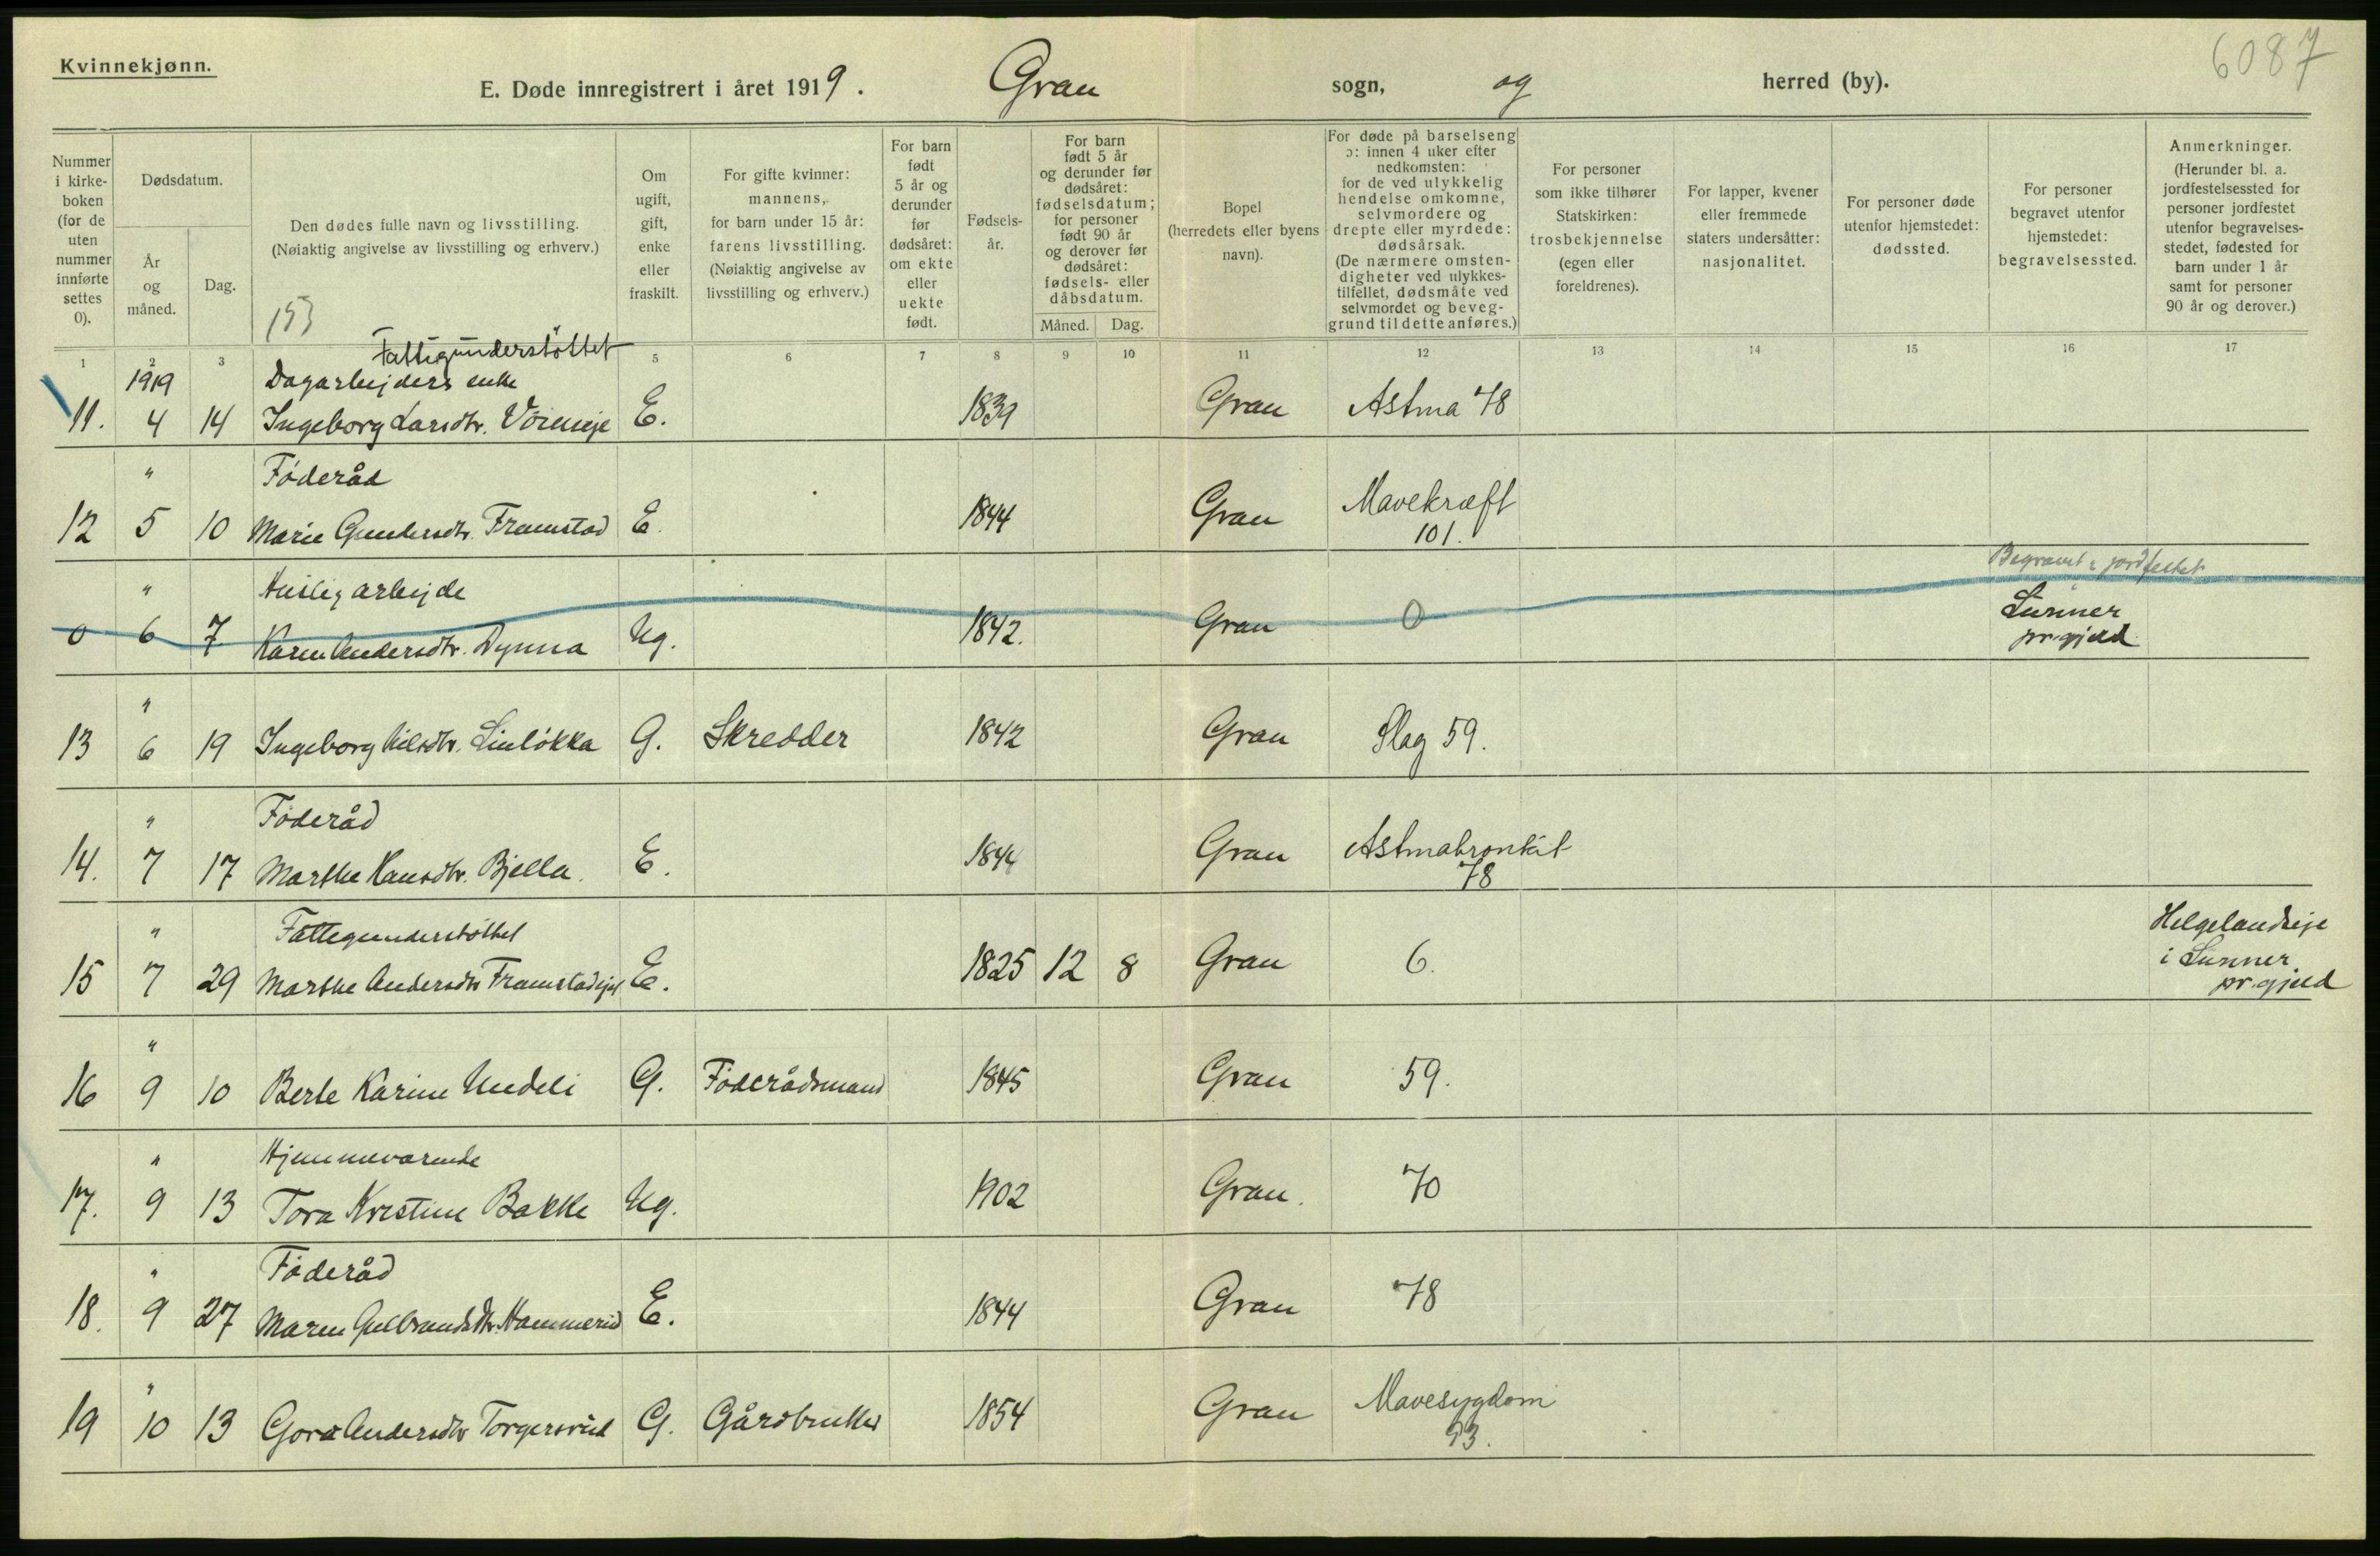 Kvinnekjønn.
6087
E. Døde innregistrert i året 1919. Gran sogn, og herred (by).
Nummer i kirke- boken (for de uten nummer innførte settes 0).
Dødsdatum.
År og måned.
Dag.
Den dødes fulle navn og livsstilling.
(Nøiaktig angivelse av livsstilling og erhverv.)
153
Om ugift, gift, enke eller fraskilt.
For gifte kvinner: mannens, for barn under 15 år: farens livsstilling. (Nøiaktig angivelse av livsstilling og erhverv.)
For barn født 5 år og derunder før dødsåret: om ekte eller uekte født.
Fødsels- år.
For barn født 5 år og derunder før dødsåret: fødselsdatum; for personer født 90 år og derover før dødsåret: fødsels- eller dåbsdatum.
Måned. Dag.
Bopel (herredets eller byens navn).
For døde på barselseng ɔ: innen 4 uker efter nedkomsten: for de ved ulykkelig hendelse omkomne, selvmordere og drepte eller myrdede: dødsårsak. (De nærmere omsten- digheter ved ulykkes- tilfellet, dødsmåte ved selvmordet og beveg- grund til dette anføres.)
For personer som ikke tilhører Statskirken: trosbekjennelse (egen eller foreldrenes).
For lapper, kvener eller fremmede staters undersåtter: nasjonalitet.
For personer døde utenfor hjemstedet: dødssted.
For personer begravet utenfor hjemstedet: begravelsessted.
Anmerkninger. (Herunder bl. a. jordfestelsessted for personer jordfestet utenfor begravelses- stedet, fødested for barn under 1 år samt for personer 90 år og derover.)
1 2 3 5 6 7 8 9 10 11 12 13 14 15 16 17
Fattigunderstöttet
1919 Dagarbejders enke
11. 4 14 Ingeborg Larsdtr. E. 1839 Gran Astma 78
" Föderåd
12 5 10 Marie Gundersdtr. Framstad E. 1844 Gran Mavekræft
101.
Begravet & jordfestet
" Huslig arbejde
0 6 7 Karen Andersdtr. Dynna Ug. 1842. Gran 0 Lunner
pr.gjeld
"
13 6 19 Ingeborg Nilsdtr. Linløkka G. Skredder 1842 Gran Slag 59.
" Föderåd
14. 7 17 Marthe Hansdtr. Bjella. E. 1844 Gran Astmabronkit
78
" Fattigunderstöttet
15 7 29 Marthe Andersdtr Framstadeje E. 1825 12 8 Gran 6. Helgelandseje
i Lunner
pr.gjeld
"
16 9 10 Berte Karine Undeli G. Föderådsmand 1845 Gran 59.
" Hjemmeværende
17. 9 13 Tora Kristine Bakke Ug. 1902 Gran. 70
" Föderåd
18. 9 27 Maren Gulbrandsdtr. Hammerud E. 1844 Gran 78
"
19 10 13 Goro Andersdtr Torgersrud G. Gårdbruker 1854 Gran Mavesygdom
93.